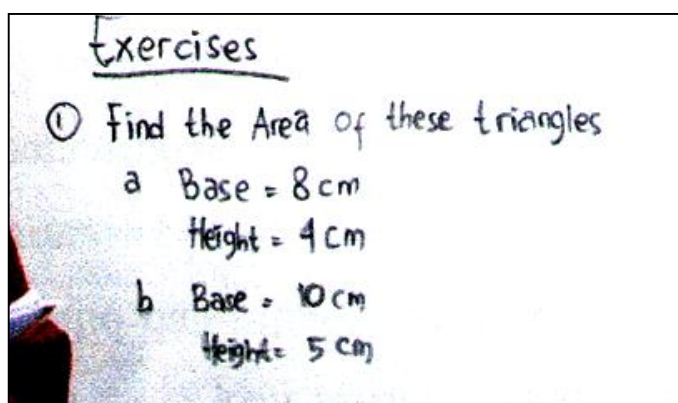 Exercises
① Find the Area of these triangles
a Base = 8 cm
Height = 4 cm
b Base = 10 cm
Height = 5 cm